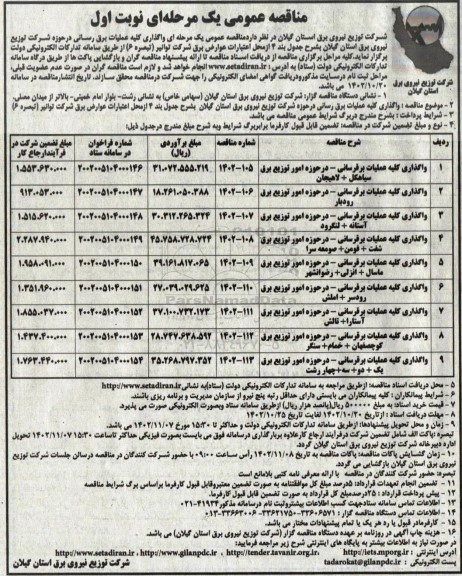 مناقصه عمومی یک مرحله‌ای نوبت اول
شرکت توزیع نیروی برق استان گیلان
شرکت توزیع نیروی برق استان گیلان در نظر دارد مناقصه عمومی یک مرحله ای واگذاری کلیه عملیات برق رسانی درحوزه شرکت توزیع
نیروی برق استان گیلان بشرح جدول بند ۴ ازمحل اعتبارات عوارض برق شرکت توانیر (تبصره ۶) از طریق سامانه تدارکات الکترونیکی دولت
برگزار نماید. کلیه مراحل برگزاری مناقصه از دریافت اسناد مناقصه تا ارائه پیشنهاد مناقصه گران و بازگشایی پاکت ها از طریق درگاه سامانه
تدارکات الکترونیکی دولت (ستاد) به آدرس: www.setadiran.ir انجام خواهد شد و لازم است مناقصه گران در صورت عدم عضویت قبلی،
مراحل ثبت نام درسایت مذکور ودریافت گواهی امضای الکترونیکی را جهت شرکت درمناقصه محقق سازند. تاریخ انتشارمناقصه در سامانه
۱۴۰۲/۱۰/۲۰ می باشد.
۱ - نشانی دستگاه مناقصه گزار: شرکت توزیع نیروی برق استان گیلان (سهامی خاص) به نشانی رشت- بلوار امام خمینی- بالاتر از میدان مصلی.
۲ - موضوع مناقصه : واگذاری کلیه عملیات برق رسانی درحوزه شرکت توزیع نیروی برق استان گیلان بشرح جدول بند ۴ ازمحل اعتبارات عوارض برق شرکت توانیر (تبصره ۶)
۳ - شرایط پرداخت : بشرح مندرج دربرگ شرایط عمومی مناقصه می باشد.
۴ - نوع و مبلغ تضمین شرکت در مناقصه: تضمین قابل قبول کارفرما برابربرگ شرایط وبه شرح مبلغ مندرج درجدول ذیل:
ردیف شرح مناقصه شماره مناقصه مبلغ برآوردی (ریال) شماره فراخوان در سامانه ستاد مبلغ تضمین شرکت در فرآیندارجاع کار
۱ واگذاری کلیه عملیات برقرسانی - درحوزه امور توزیع برق سیاهکل + لاهیجان ۱۴۰۲-۱۰۵ ۳۱.۰۷۲.۵۵۵.۲۱۹ ۲۰۰۲۰۰۵۱۰۴۰۰۰۱۴۶ ۱.۵۵۳.۶۳۰.۰۰۰
۲ واگذاری کلیه عملیات برقرسانی - درحوزه امور توزیع برق رودبار ۱۴۰۲-۱۰۶ ۱۸.۲۶۱.۰۵۰.۳۸۸ ۲۰۰۲۰۰۵۱۰۴۰۰۰۱۴۷ ۹۱۳.۰۵۳.۰۰۰
۳ واگذاری کلیه عملیات برقرسانی - درحوزه امور توزیع برق آستانه + لنگرود ۱۴۰۲-۱۰۷ ۳۰.۳۱۲.۲۶۵.۳۲۴ ۲۰۰۲۰۰۵۱۰۴۰۰۰۱۴۸ ۱.۵۱۵.۶۲۰.۰۰۰
۴ واگذاری کلیه عملیات برقرسانی - درحوزه امور توزیع برق شفت + فومن + صومعه سرا ۱۴۰۲-۱۰۸ ۴۵.۷۵۸.۷۲۸.۷۲۴ ۲۰۰۲۰۰۵۱۰۴۰۰۰۱۴۹ ۲.۲۸۷.۹۴۰.۰۰۰
۵ واگذاری کلیه عملیات برقرسانی - درحوزه امور توزیع برق ماسال + انزلی + رضوانشهر ۱۴۰۲-۱۰۹ ۳۹.۱۶۱.۸۱۷.۰۶۵ ۲۰۰۲۰۰۵۱۰۴۰۰۰۱۵۰ ۱.۹۵۸.۰۹۱.۰۰۰
۶ واگذاری کلیه عملیات برقرسانی - درحوزه امور توزیع برق رودسر + املش ۱۴۰۲-۱۱۰ ۲۷.۰۳۹.۰۲۹.۶۲۵ ۲۰۰۲۰۰۵۱۰۴۰۰۰۱۵۱ ۱.۳۵۱.۹۶۰.۰۰۰
۷ واگذاری کلیه عملیات برقرسانی - درحوزه امور توزیع برق آستارا + تالش ۱۴۰۲-۱۱۱ ۳۷.۱۰۰.۷۳۲.۱۷۳ ۲۰۰۲۰۰۵۱۰۴۰۰۰۱۵۲ ۱.۸۵۵.۰۳۷.۰۰۰
۸ واگذاری کلیه عملیات برقرسانی - درحوزه امور توزیع برق کوچصفهان + خمام + سنگر ۱۴۰۲-۱۱۲ ۲۸.۷۴۷.۶۳۸.۵۹۲ ۲۰۰۲۰۰۵۱۰۴۰۰۰۱۵۳ ۱.۴۳۷.۴۰۰.۰۰۰
۹ واگذاری کلیه عملیات برقرسانی - درحوزه امور توزیع برق یک + دو + سه + چهار رشت ۱۴۰۲-۱۱۳ ۳۵.۲۶۸.۷۹۷.۳۵۲ ۲۰۰۲۰۰۵۱۰۴۰۰۰۱۵۴ ۱.۷۶۳.۴۴۰.۰۰۰
۵ - محل دریافت اسناد مناقصه: ازطریق مراجعه به سامانه تدارکات الکترونیکی دولت (ستاد)به نشانی http://www.setadiran.ir
۶ - شرایط پیمانکاران : کلیه پیمانکاران می بایستی دارای حداقل رتبه پنج نیرو از سازمان مدیریت و برنامه ریزی باشند.
۷ - قیمت خرید اسناد: به مبلغ ۵۰۰۰۰۰ ریال(پانصد هزار ریال) ازطریق سامانه ستاد وبصورت الکترونیکی صورت می پذیرد.
۸ - مهلت دریافت اسناد : ازتاریخ ۱۴۰۲/۱۰/۲۰ لغایت تاریخ ۱۴۰۲/۱۰/۲۵
۹ - زمان و محل تحویل پیشنهادها: ازطریق سامانه تدارکات الکترونیکی دولت و حداکثر تا ۱۵:۳۰ مورخ ۱۴۰۲/۱۱/۰۷ می باشد.
تبصره :پاکت الف شامل تضمین شرکت درفرآیند ارجاع کارعلاوه بربارگذاری درسامانه فوق می بایست بصورت فیزیکی حداکثر تاساعت ۱۵:۳۰ ۱۴۰۲/۱۱/۰۷ تحویل
اداره دبیرخانه شرکت توزیع نیروی برق استان گیلان گردد.
۱۰ - زمان گشایش پاکات مناقصه: پاکات مناقصه به تاریخ ۱۴۰۲/۱۱/۰۸ رأس ساعت ۰۹:۰۰ با حضور شرکت کنندگان در مناقصه درسالن جلسات شرکت توزیع
نیروی برق استان گیلان بازگشایی می گردد.
تبصره: حضور شرکت کنندگان در مناقصه با ارائه معرفی نامه کتبی بلامانع است
۱۱ - تضمین انجام تعهدات قرارداد: ۵درصد مبلغ کل موافقتنامه به صورت تضمین معتبروقابل قبول کارفرما براساس برگ شرایط مناقصه
۱۲ - پیش پرداخت قرارداد : ۲۵درصدمبلغ کل قرارداد به صورت تضمین قابل قبول کارفرما.
۱۳ - اطلاعات تماس سامانه ستادجهت کسب اطلاعات بیشتروثبت نام درسامانه مذکور: ۴۱۹۳۴-۰۲۱
۱۴ - اطلاعات تماس دستگاه مناقصه گزار : ۳۳۶۰۶۵۷۱ - ۳۳۶۲۱۷۵۰ - ۳۳۶۶۳۰۰۶-۰۱۳
۱۵ - کارفرمادر قبول یا رد هر یک یا تمام پیشنهادات مختار می باشد.
۱۶ - هزینه چاپ آگهی در روزنامه بر عهده دستگاه مناقصه گزار (شرکت توزیع نیروی برق استان گیلان) می باشد.
در صورت نیاز به اطلاعات بیشتر به پایگاه های اینترنتی شرح زیر مراجعه فرمائید:
آدرس اینترنتی : http://www.setadiran.ir , http://www.gilanpdc.ir , http://tender.tavanir.org.ir , http://iets.mporg.ir
پست الکترونیکی : tadarokat@gilanpdc.ir
شرکت توزیع نیروی برق استان گیلان